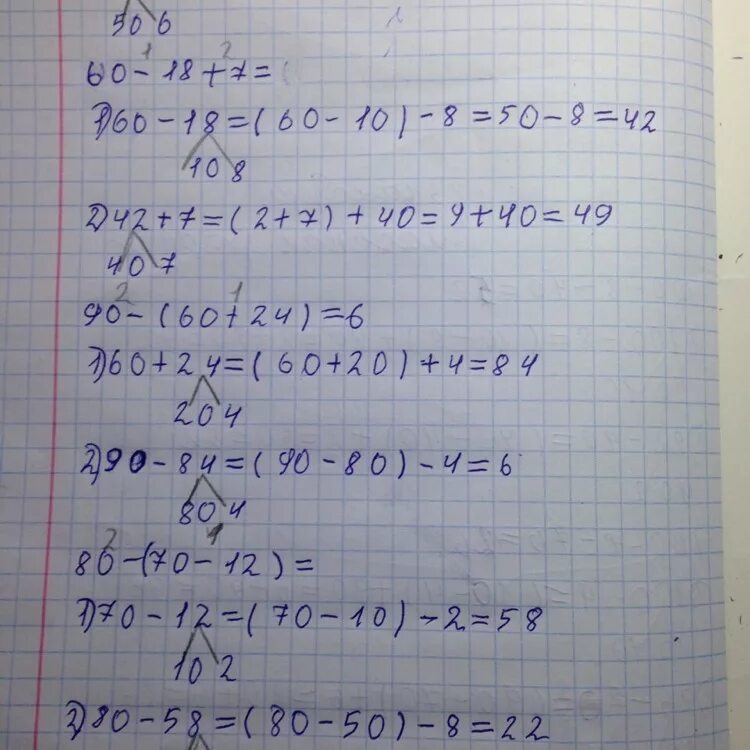 50 6
1 2
60 - 18 + 7 =
1) 60 - 18 = ( 60 - 10 ) - 8 = 50 - 8 = 42
10 8
2) 42 + 7 = ( 2 + 7 ) + 40 = 9 + 40 = 49
40 7
2 1
90 - ( 60 + 24 ) = 6
1) 60 + 24 = ( 60 + 20 ) + 4 = 84
20 4
2) 90 - 84 = ( 90 - 80 ) - 4 = 6
80 4
2 1
80 - ( 70 - 12 ) =
1) 70 - 12 = ( 70 - 10 ) - 2 = 58
10 2
2) 80 - 58 = ( 80 - 50 ) - 8 = 22